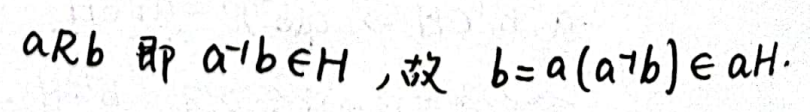 aRb 即 a⁻¹b∈H ,故 b=a(a⁻¹b)∈aH.